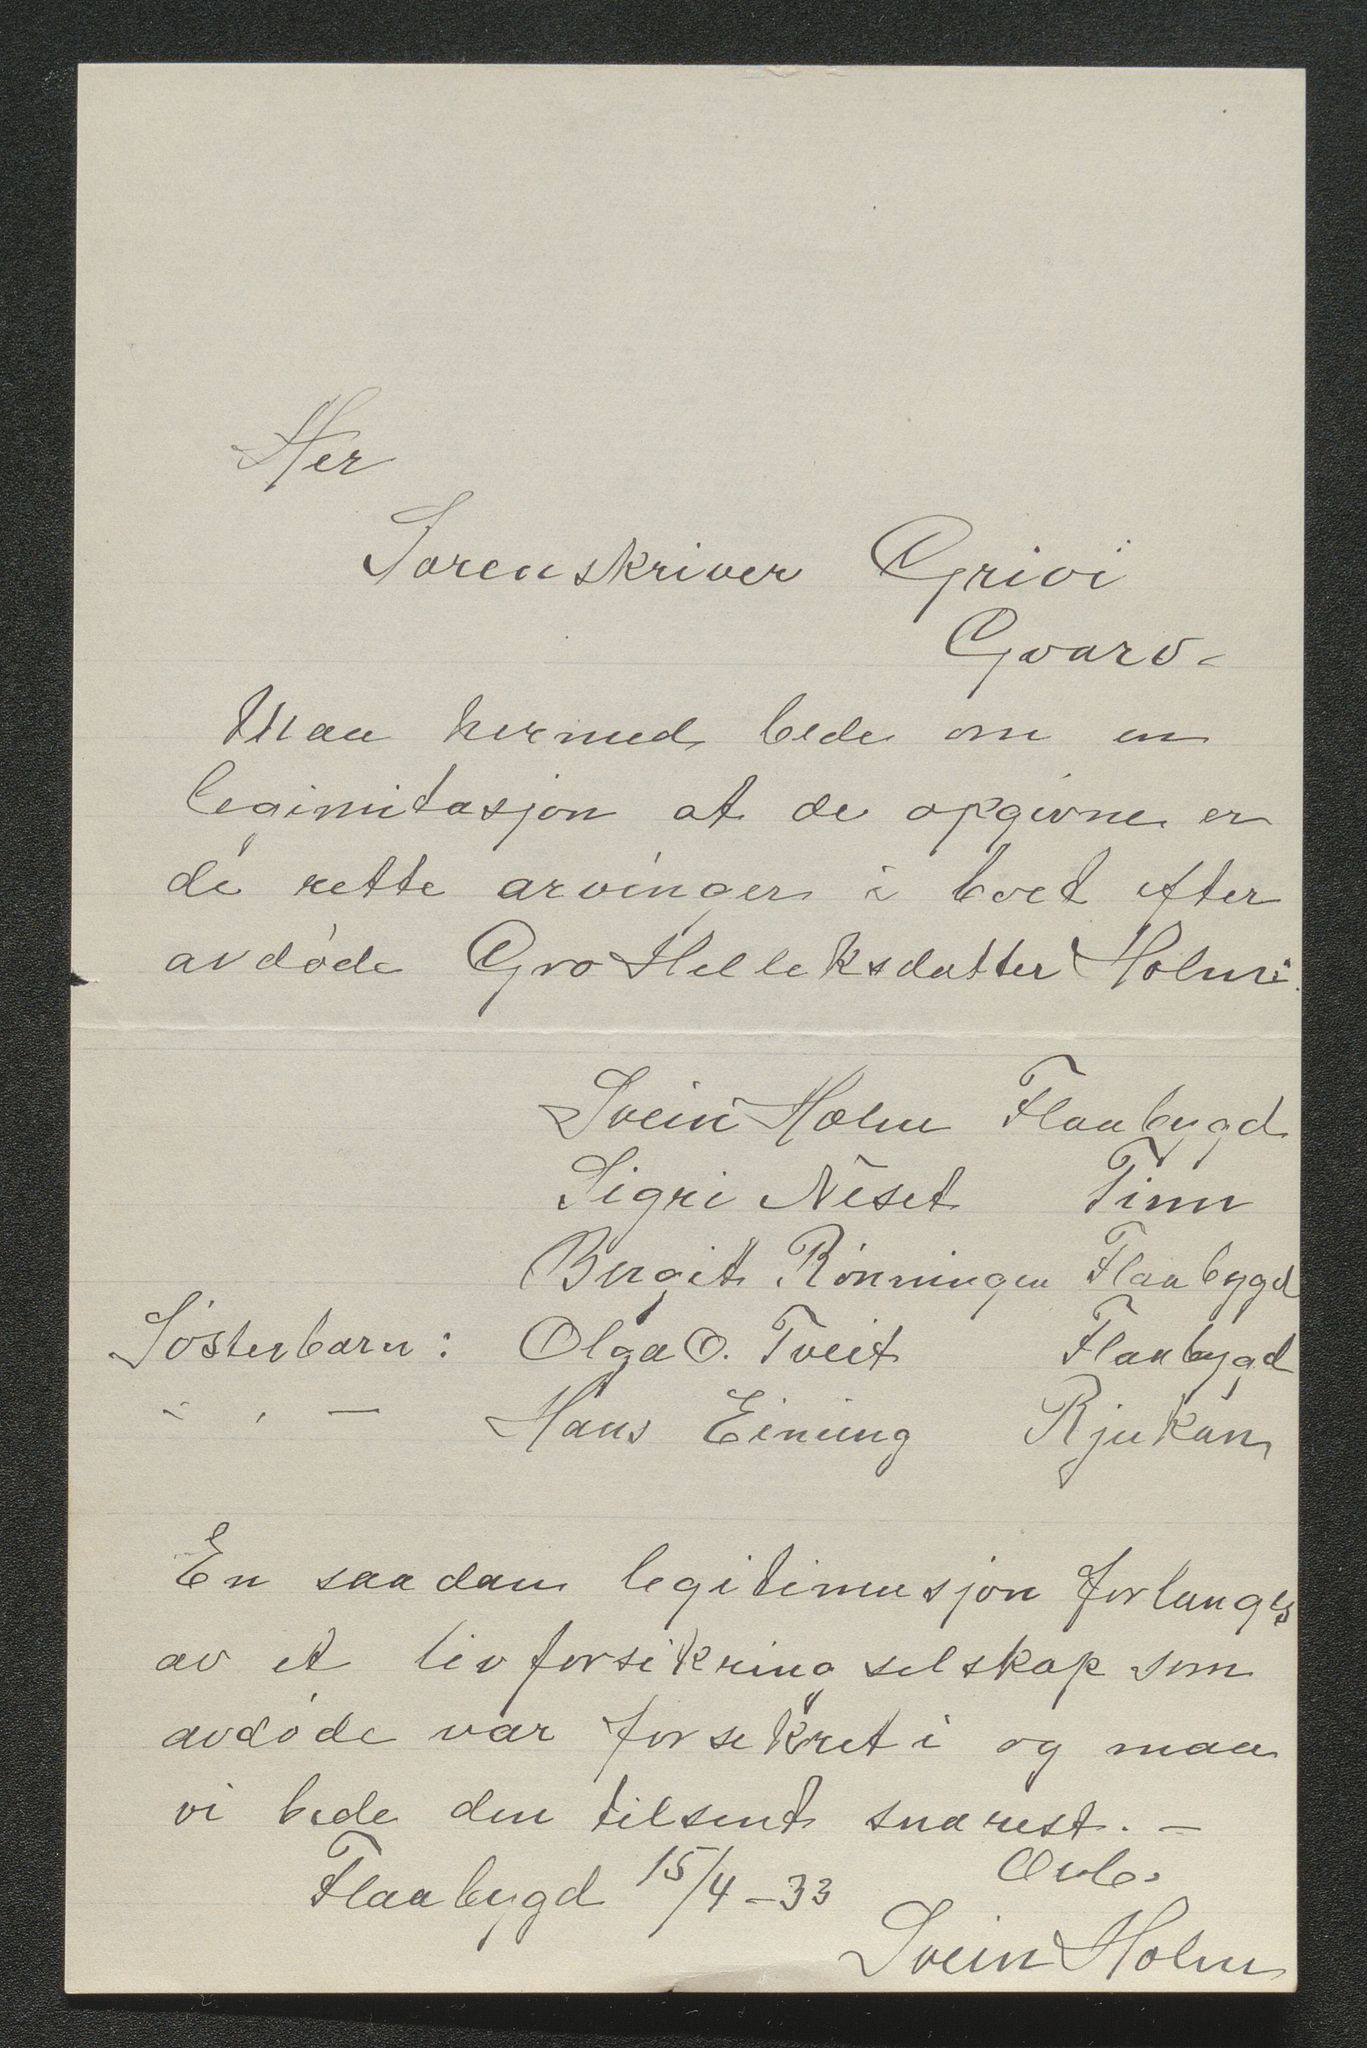 Her
Sorenskriver Grivi
Gvarv.
Maa hermed bede om en
legimitasjon at de opgivne er
de rette arvinger i boet efter
avdøde Gro Helleksdatter Holm:
Svein Holm Flaabygd
Sigri Neset Tinn
Birgit Rønningen Flaabygd
Søsterbarn: Olga O. Tveit Flaabygd
- " - Hans Einung Rjukan
En saadan legitimasjon forlanges
av et livforsikringselskap som
avdøde var forsekret i og maa
vi bede den tilsent snarest. -
Flaabygd 15/4-33 Ærb.
Svein Holm